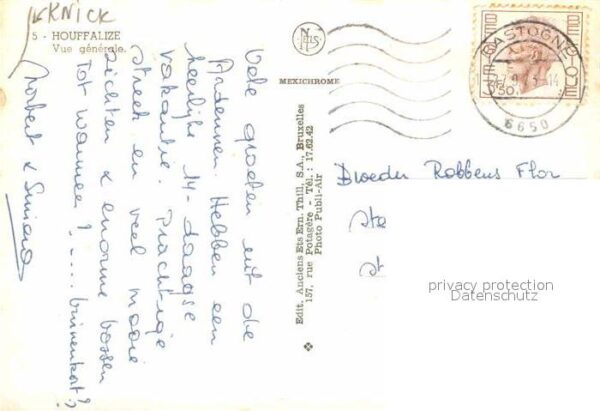 KNICK
5 - HOUFFALIZE
Vue générale.
Vele groeten uit de
Ardennen. Hebben een
heerlijke 14-daagse
vakantie. Prachtige
streek en veel mooie
zichten & enorme bossen
Tot wanneer? .... binnenkort?
Norbert &
MEXICHROME
Edit. Anciens Ets Ern. Thill, S.A., Bruxelles
157, rue Potagère - Tél. : 17.62.42
Photo Publi-Air
BELGIE BELGIQUE
BASTOGNE
6650
Broeder Robbens Flor
privacy protection
Datenschutz